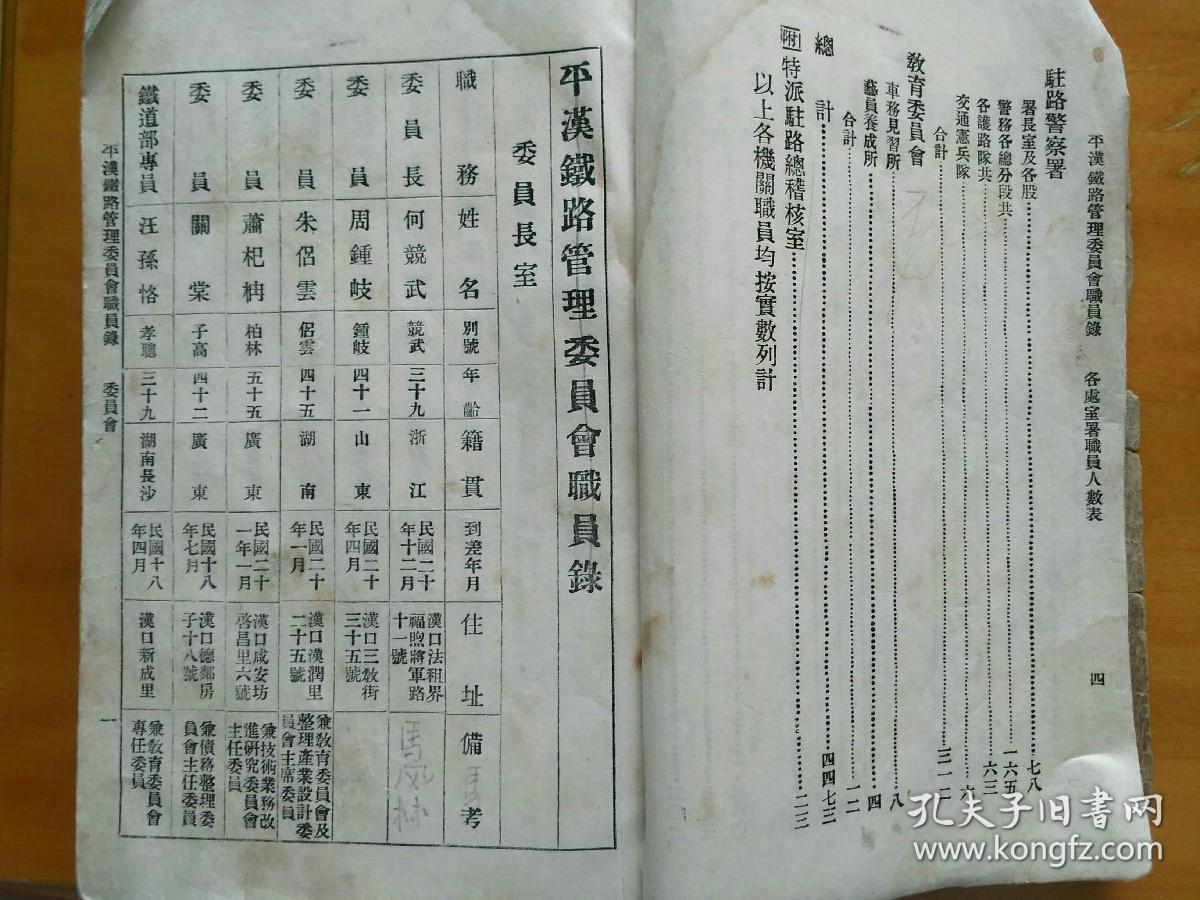 平漢鐵路管理委員會職員錄 各處室署職員人數表 四
駐路警察署
署長室及各股 七八
警務各總分段共 一六五
各護路隊共 六三
交通憲兵隊 六
合計 三一二
教育委員會
車務見習所 八
藝員養成所 四
合計 一二
總計 四四七三
附 特派駐路總稽核室 二三
以上各機關職員均按實數列計
平漢鐵路管理委員會職員錄
委員長室
職務 姓名 別號 年齡 籍貫 到差年月 住址 備考
委員長 何競武 競武 三十九 浙江 民國二十年十二月 漢口法租界福煦將軍路十一號 馬风林
委員 周鍾岐 鍾岐 四十一 山東 民國二十年四月 漢口三教街三十五號
委員 朱侣雲 侣雲 四十五 湖南 民國二十年一月 漢口漢潤里二十五號 兼教育委員會及整理產業設計委員會主席委員
委員 蕭杞枏 柏林 五十五 廣東 民國二十一年一月 漢口成安坊啓昌里六號 兼技術業務改進研究委員會主任委員
委員 關棠 子高 四十二 廣東 民國十八年七月 漢口德鄰房子十八號 兼債務整理委員會主任委員
鐵道部專員 汪孫恪 孝聰 三十九 湖南長沙 民國十八年四月 漢口新成里 兼教育委員會專任委員
平漢鐵路管理委員會職員錄 委員會 一
孔夫子旧书网
www.kongfz.com